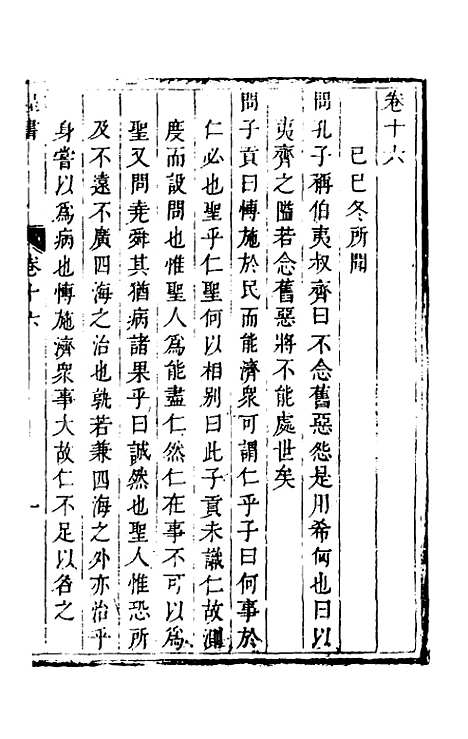 卷十六
己巳冬所聞
問孔子稱伯夷叔齊曰不念舊惡怨是用希何也曰以
夷齊之隘若念舊惡將不能處世矣
問子貢曰博施於民而能濟衆可謂仁乎子曰何事於
仁必也聖乎仁聖何以相別曰此子貢未識仁故測
度而設問也惟聖人爲能盡仁然仁在事不可以爲
聖又問堯舜其猶病諸果乎曰誠然也聖人惟恐所
及不遠不廣四海之治也孰若兼四海之外亦治乎
身嘗以爲病也博施濟衆事大故仁不足以名之
書
卷十六
一